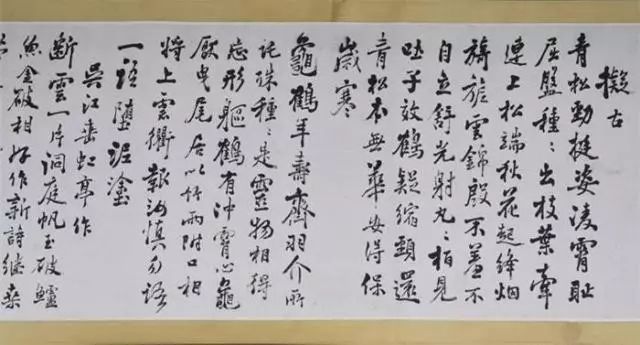 擬古
青松勁挺姿凌霄恥
屈盤種々出枝葉牽
連上松端秋花起絳烟
旖旎雲錦殷不羞不
自立舒光射丸々柏見
吐子效鶴疑縮頸還
青松本無華安得保
歲寒
龜鶴年壽齊羽介所
託殊種々是靈物相得
忘形軀鶴有沖霄心龜
厭曳尾居以竹兩附口相
將上雲衢報汝慎勿語
一語墮泥塗
吳江垂虹亭作
斷雲一片洞庭帆玉破鱸
魚金破柑好作新詩繼桑